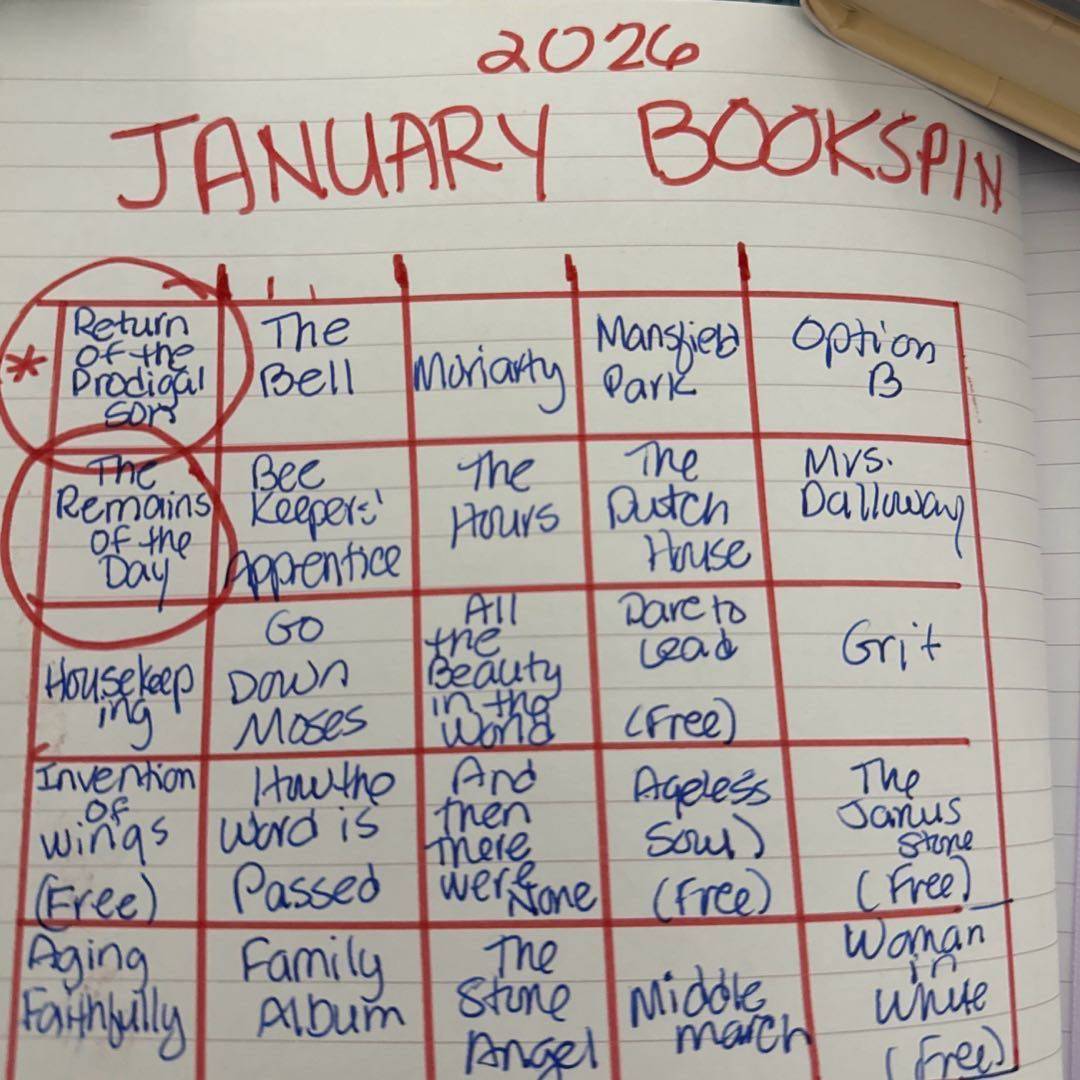 2026
JANUARY BOOKSPIN
*
Return
of the
Prodigal
Son
The
Bell
Moriarty
Mansfield
Park
Option
B
The
Remains
of the
Day
Bee
Keepers'
Apprentice
The
Hours
The
Dutch
House
Mrs.
Dalloway
Housekeep
ing
Go
Down
Moses
All
the
Beauty
in the
World
Dare to
Lead
(Free)
Grit
Invention
of
Wings
(Free)
How the
Word is
Passed
And
then
there
were None
Ageless
Soul
(Free)
The
Janus
Stone
(Free)
Aging
Faithfully
Family
Album
The
Stone
Angel
Middle
march
Woman
in
White
(Free)